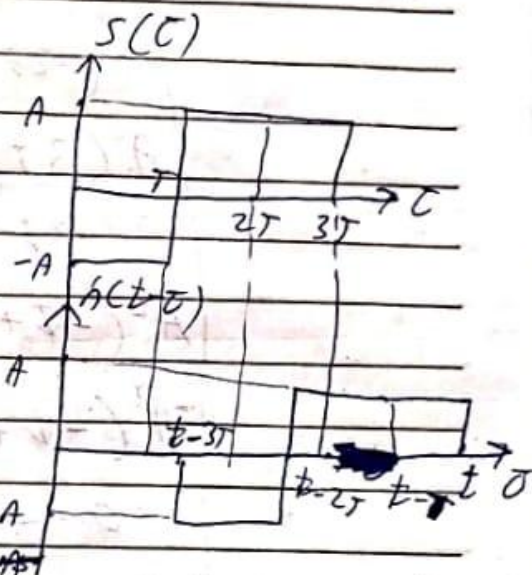 S(τ)
A
T
τ
2T 3T
-A
h(t-τ)
A
t-3T
t-2T t-T t τ
A